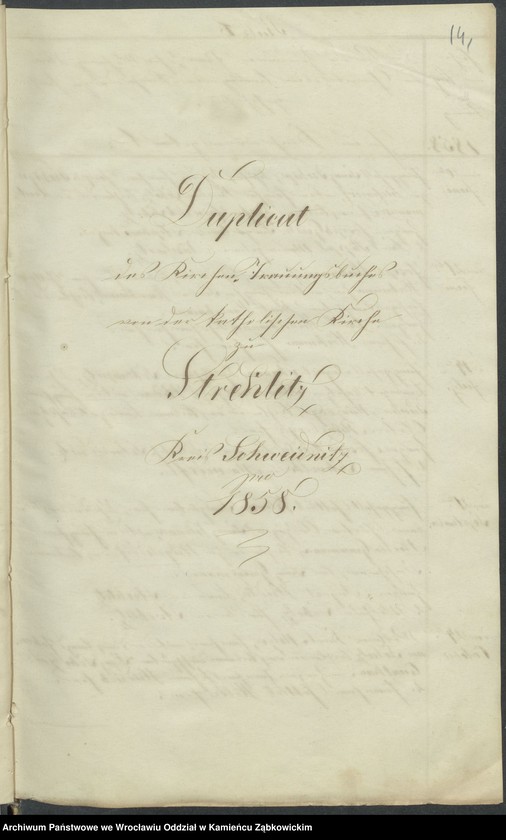 14,
Duplicat
des Kirchen-Trauungsbuches
von der katholischen Kirche
zu
Strehlitz
Kreis Schweidnitz
pro
1858.
Archiwum Państwowe we Wrocławiu Oddział w Kamieńcu Ząbkowickim